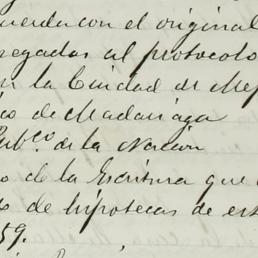 uerda con el original
regadas al protocolo
n la Ciudad de Mej
cio de Madariaga
Pub.co de la Nacion
s de la Escritura que
s de hipotecas de est
59.